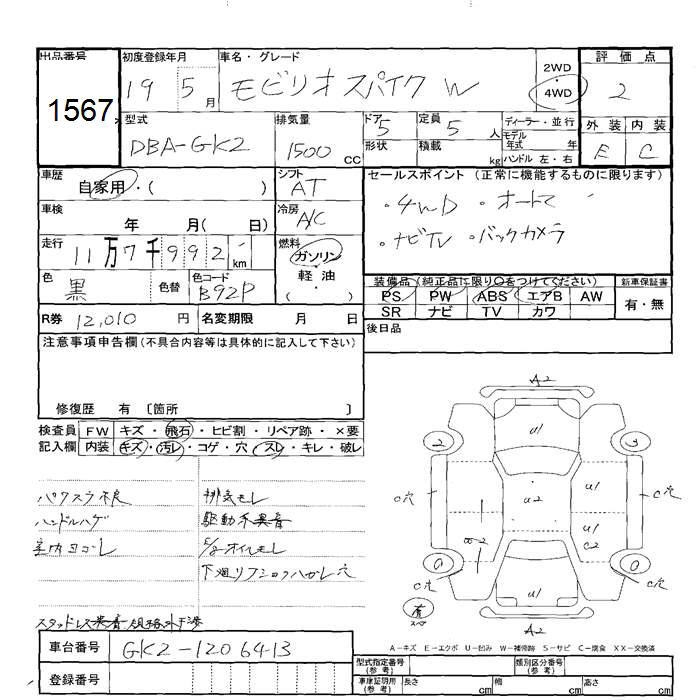 出品番号 初度登録年月 車名・グレード 2WD 4WD 評価点
1567 19 5月 モビリオスパイク W 2
型式 排気量 ドア 5 定員 5人 ディーラー・並行 外装 内装
DBA-GK2 1500 CC 形状 積載 kg モデル年式 年 E C
ハンドル 左・右
車歴 シフト セールスポイント (正常に機能するものに限ります)
自家用・( ) AT
・4WD ・オートマ
車検 年 月( 日) 冷房 A/C
・ナビTV ・バックカメラ
走行 11万7千992 km 燃料 ガソリン・軽油・( )
色 黒 色替 色コード B92P
装備品(純正品に限り○をつけてください) 新車保証書
PS PW ABS エアB AW 有・無
SR ナビ TV カワ
R券 12,010 円 名変期限 月 日
後日品
注意事項申告欄(不具合内容等は具体的に記入して下さい)
修復歴 有 〔箇所 〕
検査員記入欄 FW キズ・飛石・ヒビ割・リペア跡・×要
内装 キズ・汚レ・コゲ・穴・スレ・キレ・破レ
A2
U1
2 3
C穴 U2 U1 C穴
U1
C2
C穴 U1 C穴
A2
パワスラ不良 排気モレ
ハンドルハゲ 駆動系異音
室内ヨゴレ E/gオイルモレ
下廻リ
スタッドレス
車台番号 GK2-1206413
登録番号
A-キズ E-エクボ U-凹み W-補修跡 S-サビ C-腐食 XX-交換済
型式指定番号(参考) 類別区分番号(参考)
車庫証明用(参考) 長さ cm 幅 cm 高さ cm